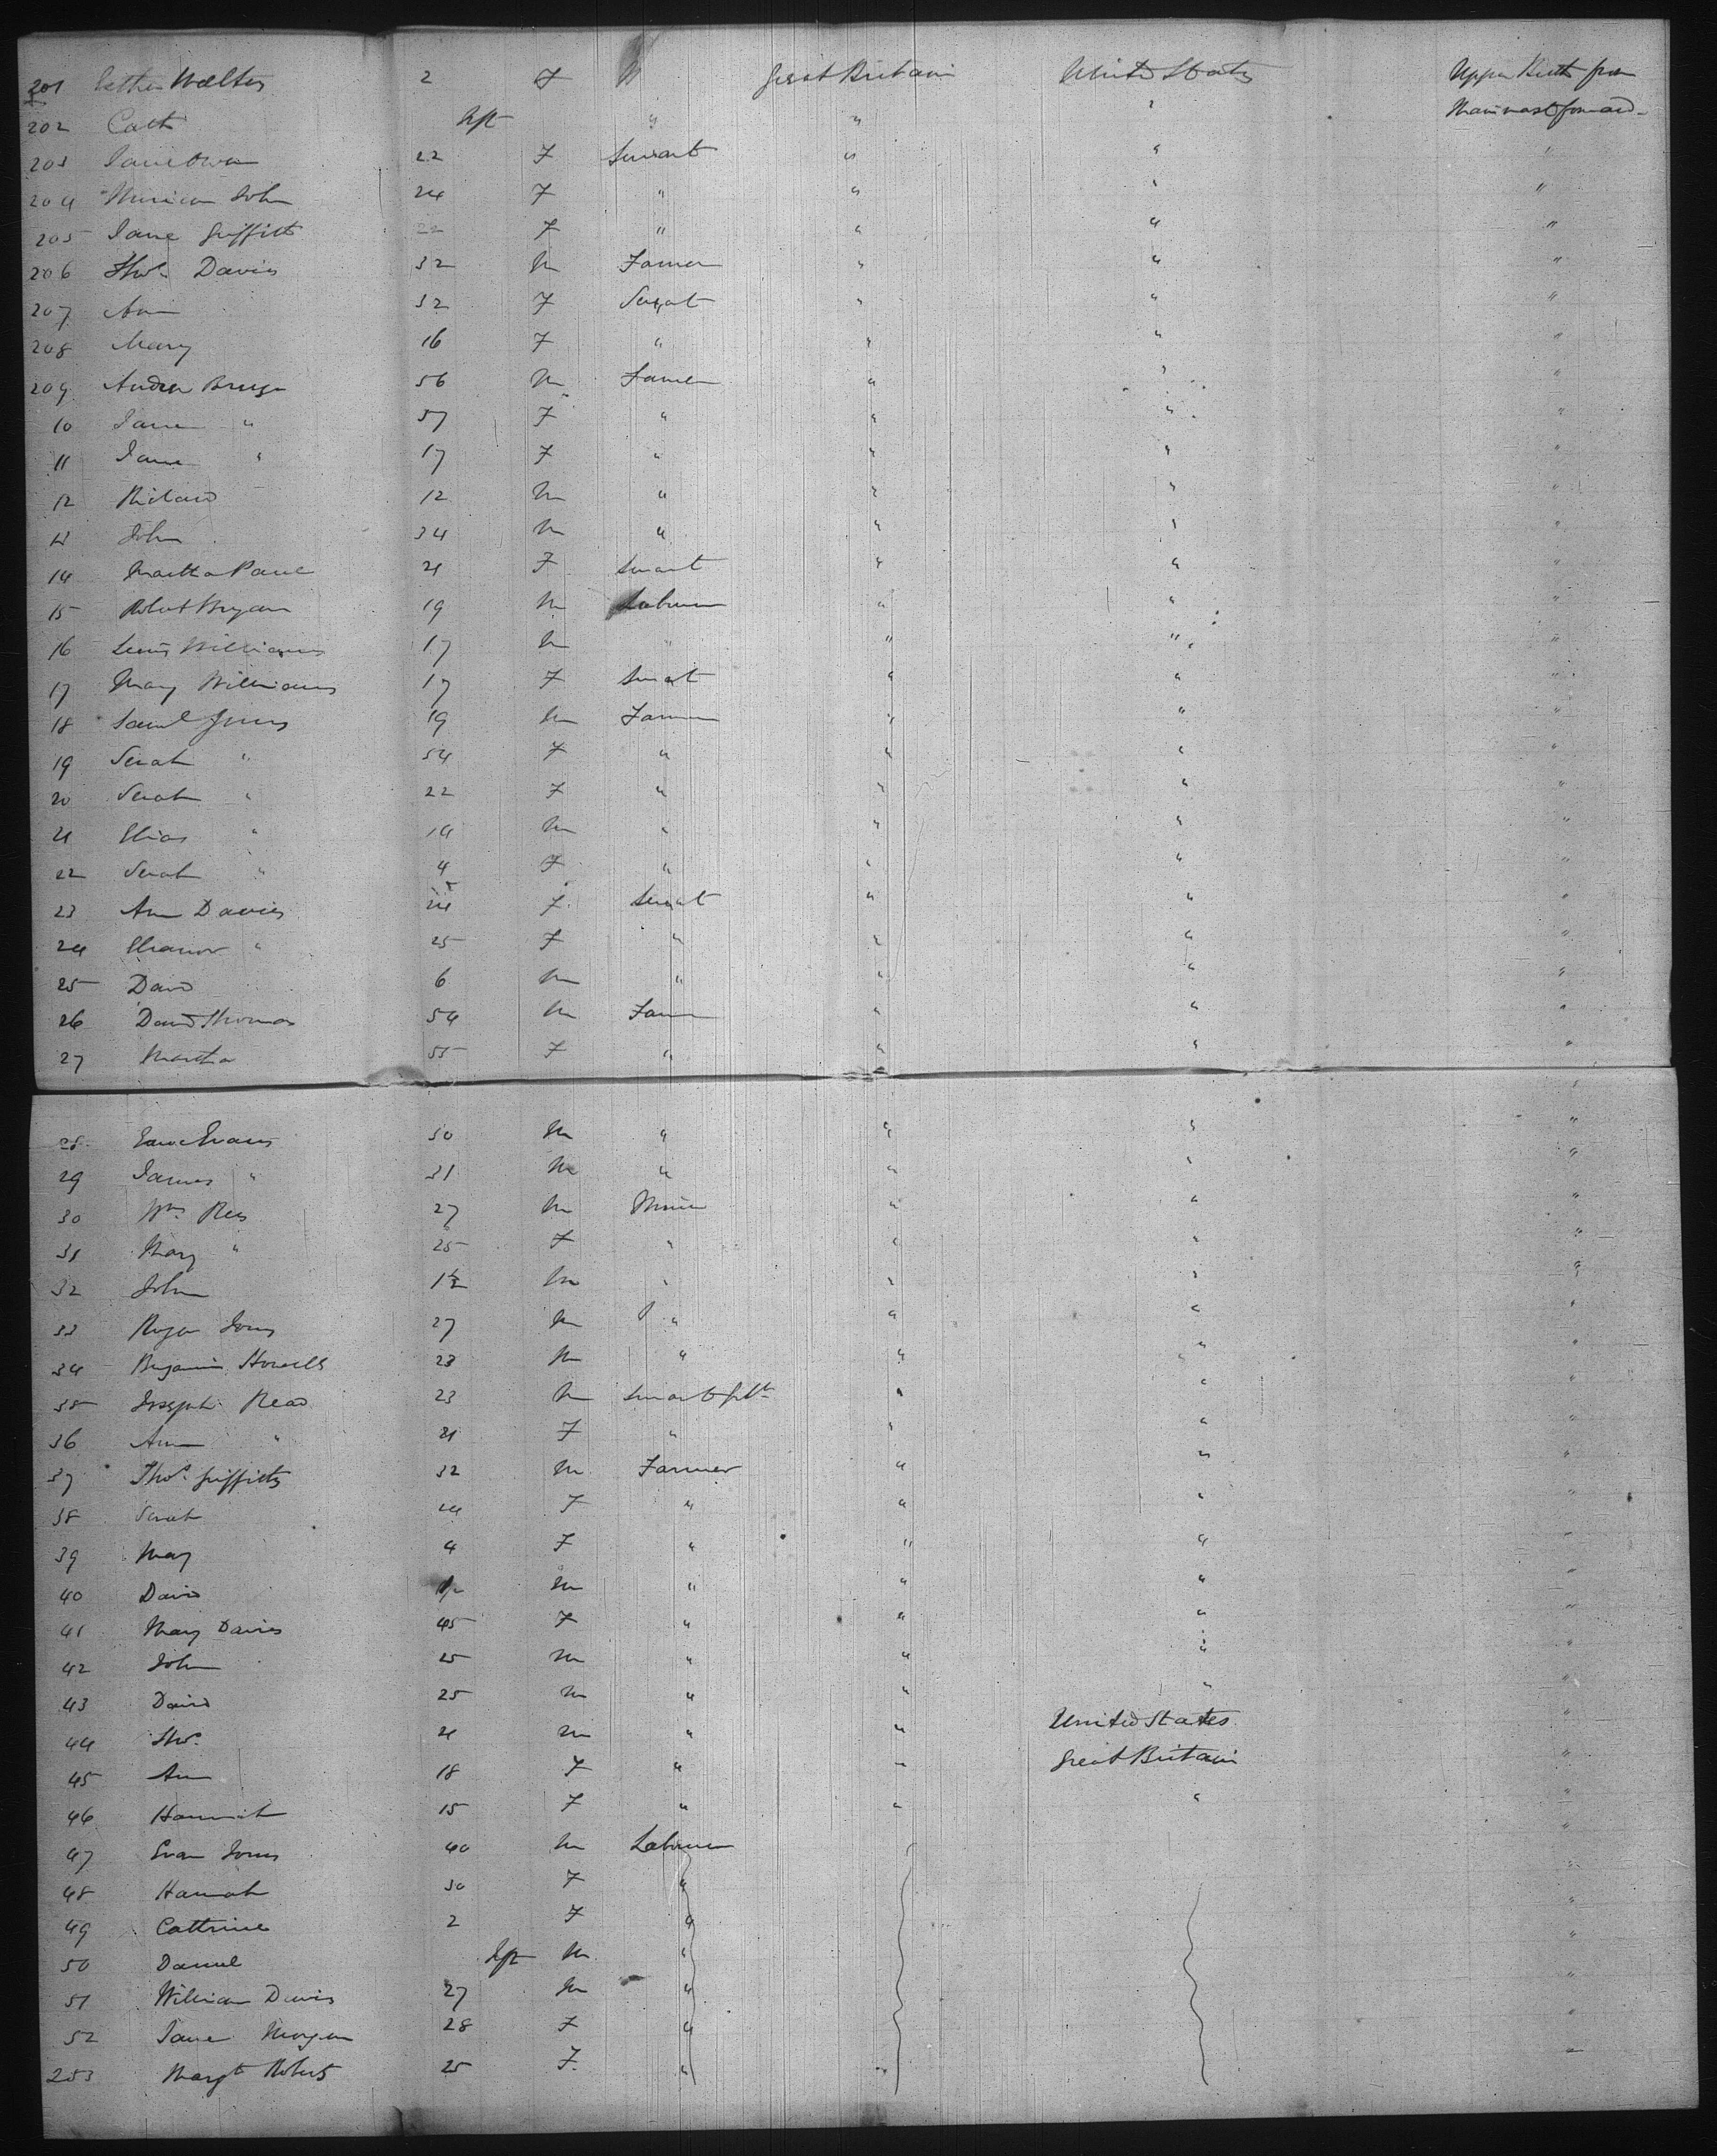 201 Esther Walters 2 F " Great Britain United States Upper Birth from
202 Cath Inft " " " Mainmast forward
203 Jane Owen 22 F Servant " " "
204 John 24 F " " " "
205 Jane Griffith 22 F " " " "
206 Thos. Davies 32 M Farmer " " "
207 Ann 32 F Servant " " "
208 Mary 16 F " " " "
209 Andrew 56 M Farmer " " "
10 Jane " 57 F " " " "
11 Jane " 17 F " " " "
12 Richard 12 M " " " "
13 John 34 M " " " "
14 Martha 21 F Servant " " "
15 Robt Bryan 19 M Labourer " " "
16 Lewis Williams 17 M " " " "
17 Mary Williams 17 F Servant " " "
18 Saml Jones 19 M Farmer " " "
19 Sarah " 54 F " " " "
20 Sarah " 22 F " " " "
21 Elias " 14 M " " " "
22 Sarah " 4 F " " " "
23 Ann Davies 24 F Servant " " "
24 Eleanor " 25 F " " " "
25 David 6 M " " " "
26 David Thomas 54 M Farmer " " "
27 Martha 55 F " " " "
28 Evans 30 M " " " "
29 James " 31 M " " " "
30 Wm. Rees 27 M Miner " " "
31 Mary " 25 F " " " "
32 John 1½ M " " " "
33 Roger Jones 27 M " " " "
34 Benjamin Howells 23 M " " " "
35 Joseph Read 23 M " " "
36 Ann " 21 F " " " "
37 Thos. Griffiths 32 M Farmer " " "
38 Sarah 24 F " " " "
39 May 4 F " " " "
40 David M " " " "
41 Mary Davies 45 F " " " "
42 John 25 M " " " "
43 David 25 M " " " "
44 Thos. 21 M " " United States "
45 Ann 18 F " " Great Britain "
46 Hannah 15 F " " " "
47 Evan Jones 40 M Labourer "
48 Hannah 30 F " "
49 Cattrine 2 F " "
50 Daniel Inft M " "
51 William Davis 27 M " "
52 Jane Morgan 28 F " "
253 Margt Roberts 25 F " "